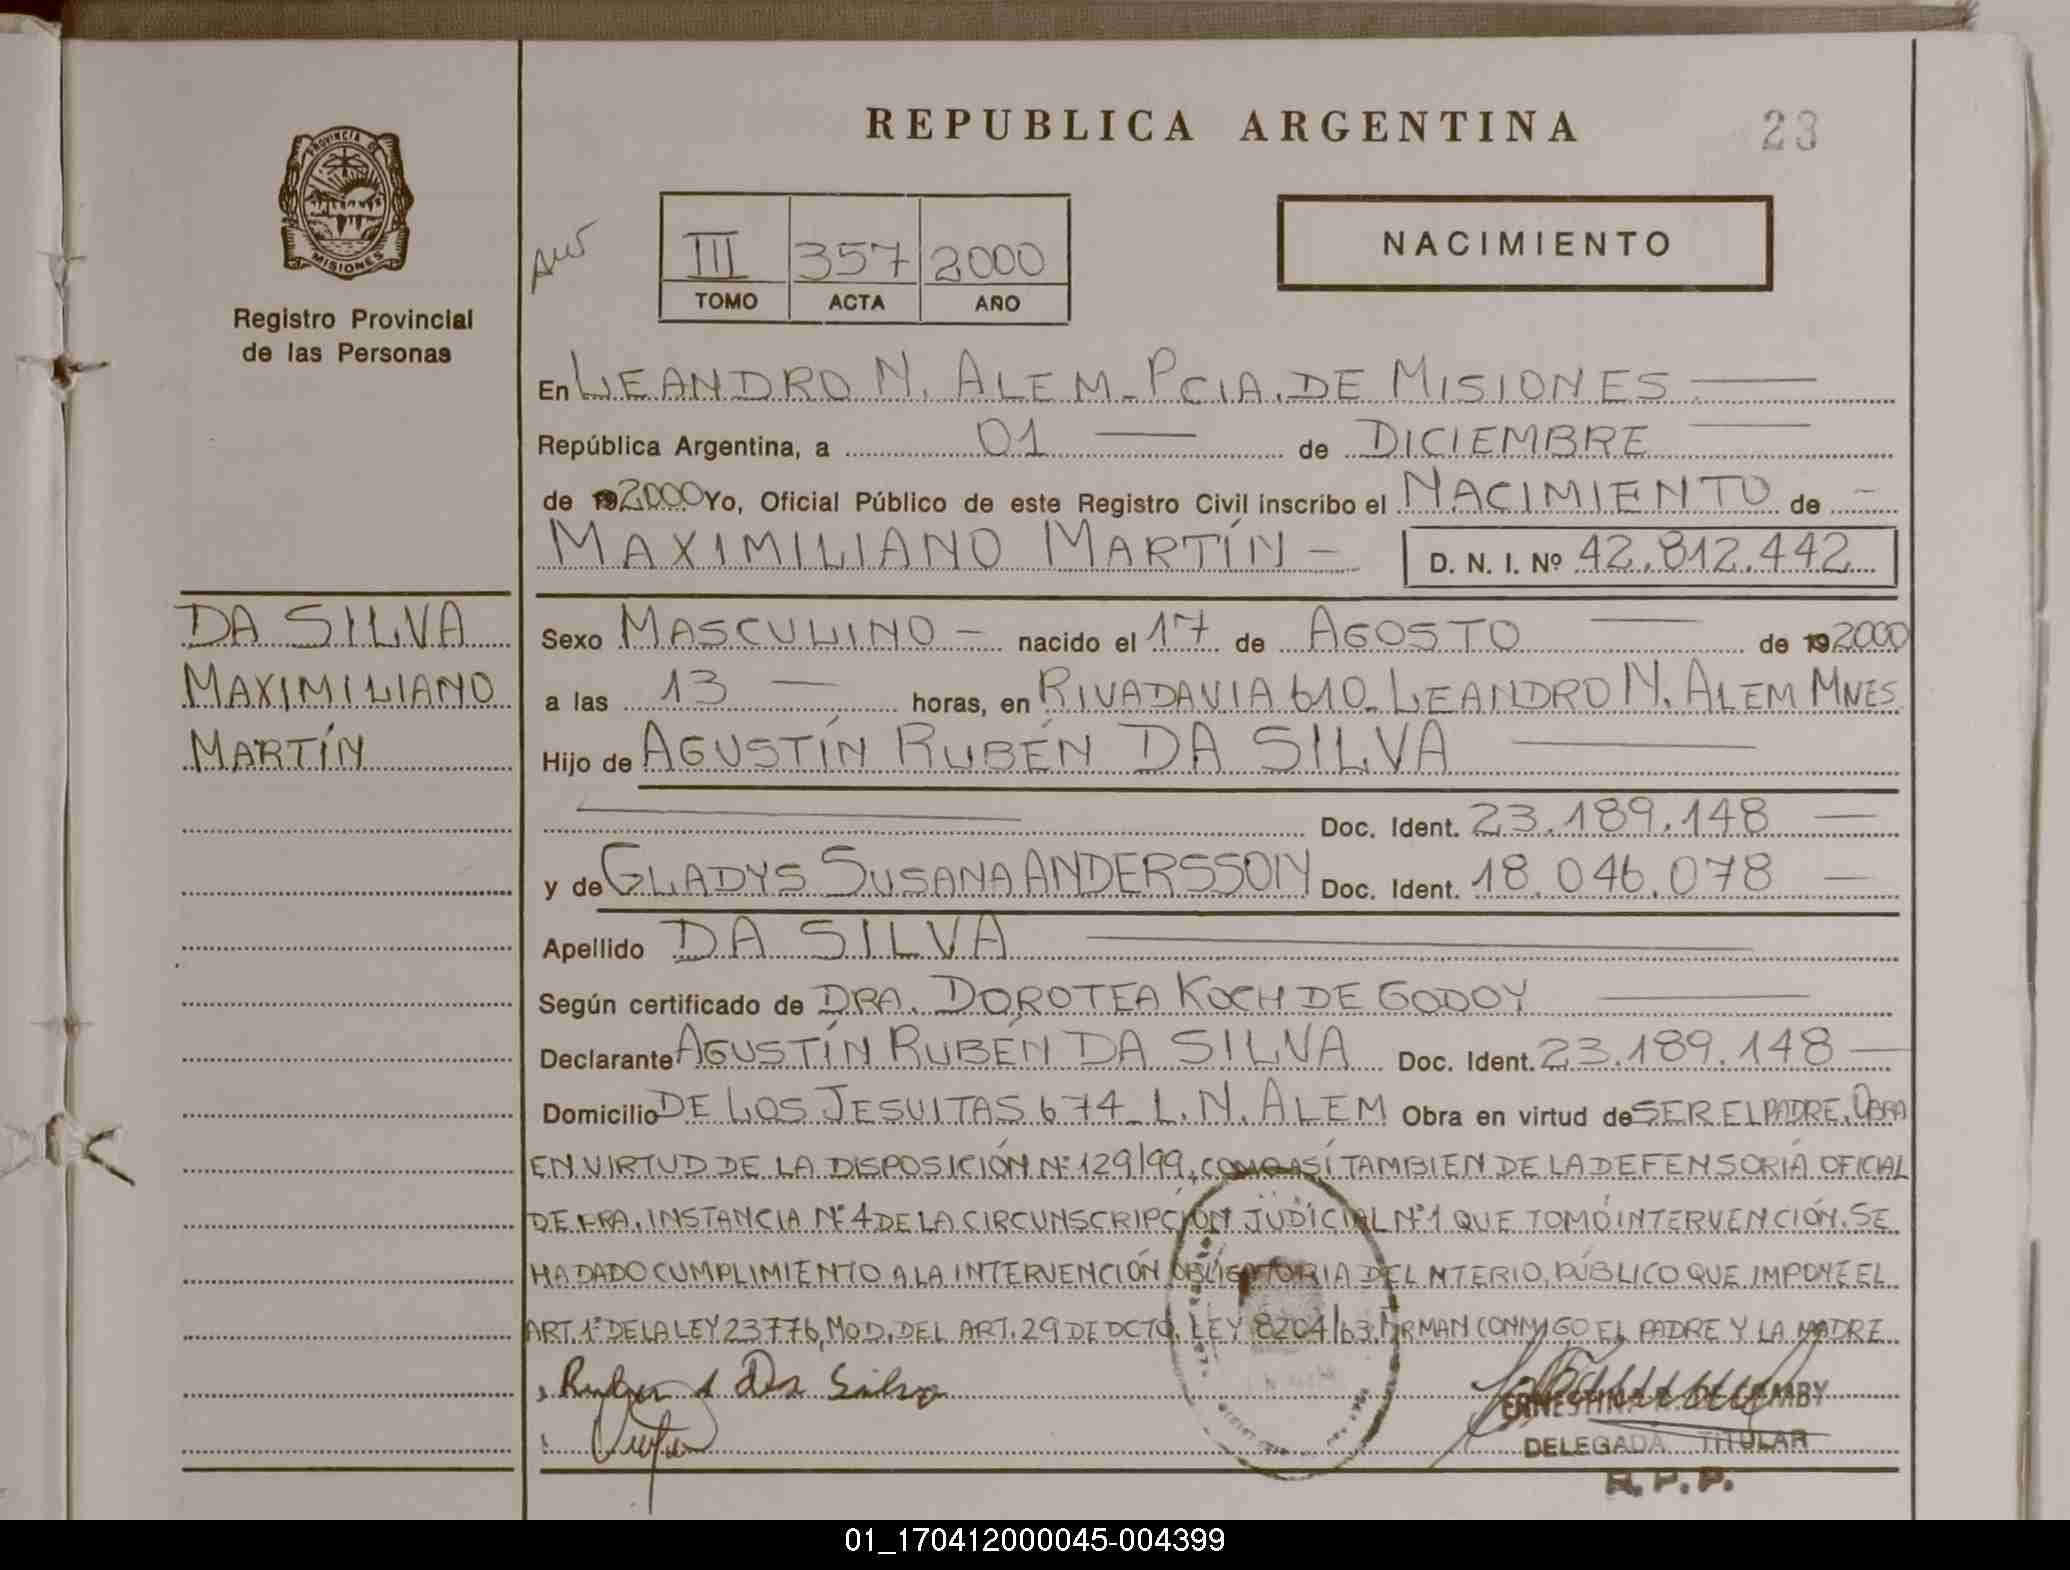 REPUBLICA ARGENTINA
23
PROVINCIA DE
MISIONES
Registro Provincial
de las Personas
III 357 2000
TOMO ACTA AÑO
NACIMIENTO
En LEANDRO N. ALEM - PCIA. DE MISIONES
República Argentina, a 01 de DICIEMBRE
de 192000 Yo, Oficial Público de este Registro Civil inscribo el NACIMIENTO de
MAXIMILIANO MARTÍN - D. N. I. Nº 42.812.442
DA SILVA
MAXIMILIANO
MARTÍN
Sexo MASCULINO - nacido el 17 de AGOSTO de 192000
a las 13 horas, en RIVADAVIA 610 - LEANDRO N. ALEM MNES
Hijo de AGUSTÍN RUBÉN DA SILVA
Doc. Ident. 23.189.148
y de GLADYS SUSANA ANDERSSON Doc. Ident. 18.046.078
Apellido DA SILVA
Según certificado de DRA. DOROTEA KOCH DE GODOY
Declarante AGUSTÍN RUBÉN DA SILVA Doc. Ident. 23.189.148
Domicilio DE LOS JESUITAS 674 - L. N. ALEM Obra en virtud de SER EL PADRE. OBRA
EN VIRTUD DE LA DISPOSICIÓN Nº 129/99, COMO ASÍ TAMBIEN DE LA DEFENSORIA OFICIAL
DE 1RA. INSTANCIA Nº 4 DE LA CIRCUNSCRIPCIÓN JUDICIAL Nº 1 QUE TOMÓ INTERVENCIÓN. SE
HA DADO CUMPLIMIENTO A LA INTERVENCIÓN OBLIGATORIA DEL MTERIO. PÚBLICO QUE IMPONE EL
ART. 1º DE LA LEY 23776, MOD. DEL ART. 29 DE DCTO. LEY 8204/63. FIRMAN CONMIGO EL PADRE Y LA MADRE
Ruben A Da Silva
DELEGADA TITULAR
R. P. P.
01_170412000045-004399